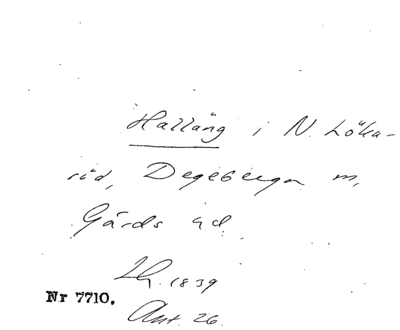 Halläng i N. Löka-
röd, Degeberga m,
Gärds hd
Lh. 1839
Nr 7710.
Akt 26